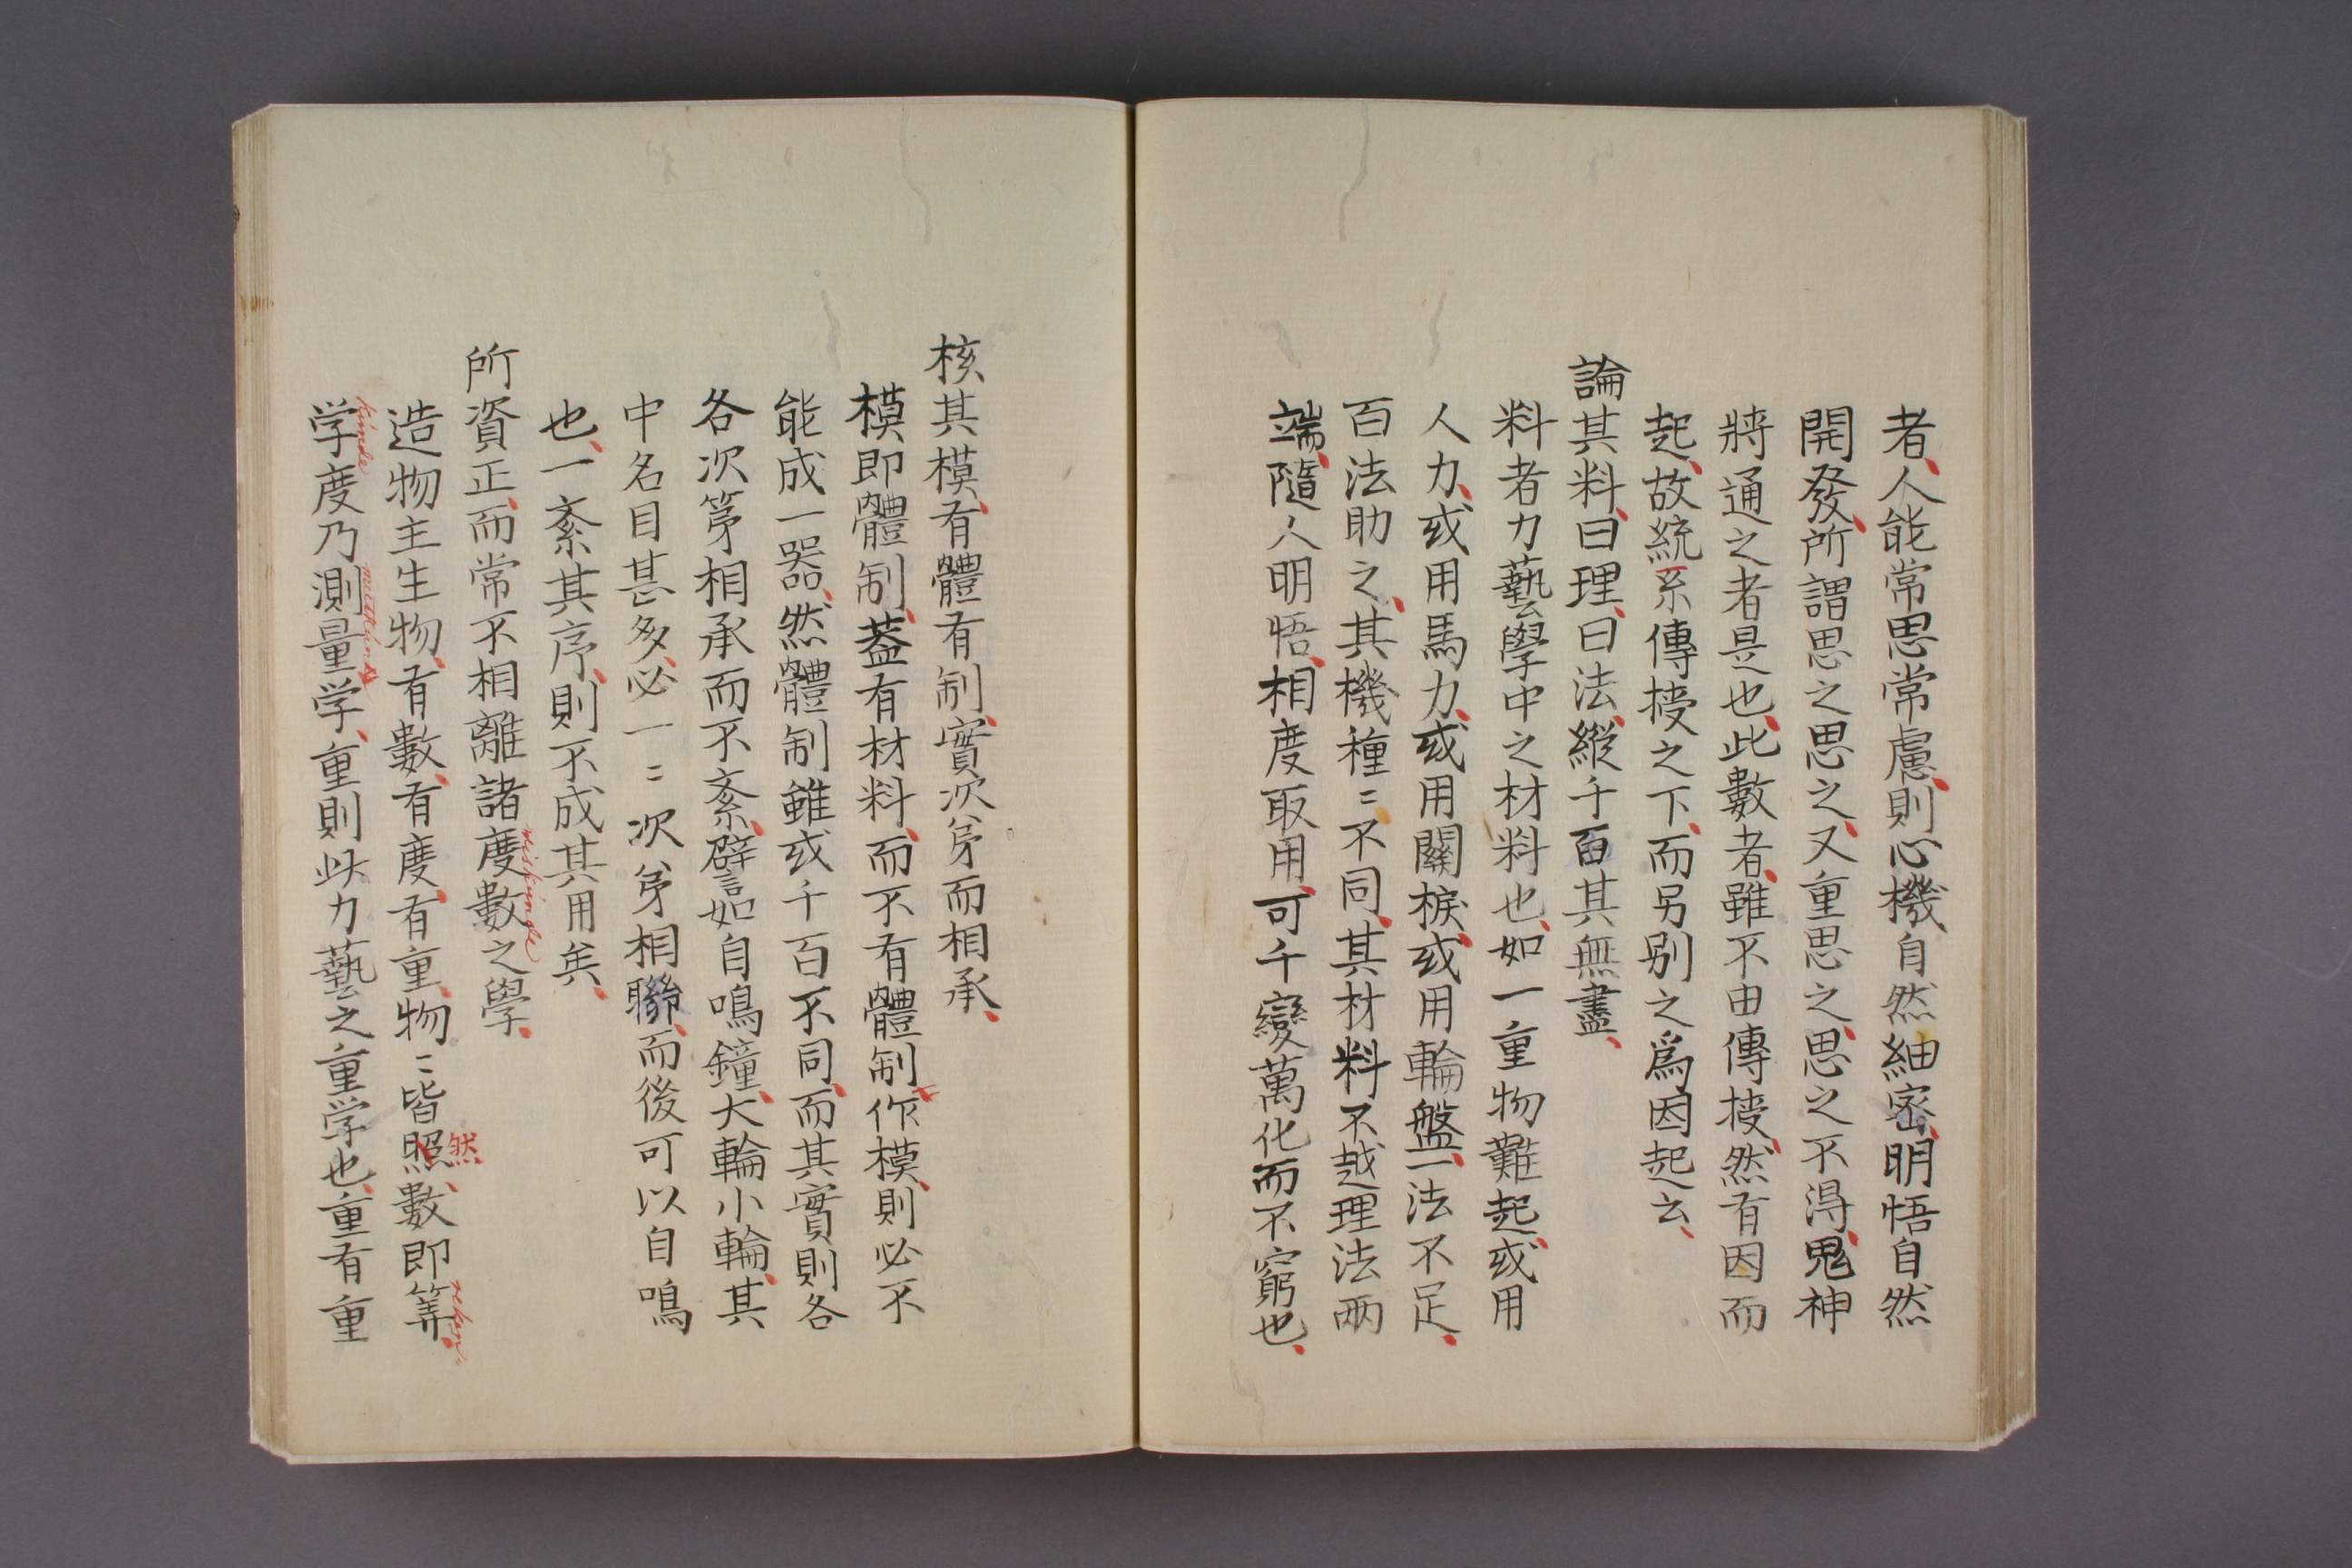 者、人能常思常慮、則心機自然細密、明悟自然
開發、所謂思之思之、又重思之、思之不得、鬼神
將通之者是也、此數者、雖不由傳授、然有因而
起、故統系傳授之下、而另别之爲因起云、
論其料、曰理、曰法、縱千百其無盡、
料者力藝學中之材料也、如一重物難起、或用
人力、或用馬力、或用關棙、或用輪盤、一法不足、
百法助之、其機種〻不同、其材料不越理法兩
端、隨人明悟、相度取用、可千變萬化而不窮也、
核其模、有體有制、實次第而相承、
模即體制、葢有材料、而不有體制作模、則必不
能成一器、然體制雖或千百不同、而其實則各
各次第相承而不紊、譬如自鳴鐘、大輪小輪、其
中名目甚多、必一〻次第相聯、而後可以自鳴
也、一紊其序、則不成其用矣、
所資正、而常不相離諸度數之學、
miskinde
造物主生物、有數、有度、有重、物〻皆照、數即筭、
然
rken
学度乃測量学、重則此力藝之重学也、重有重
kinde